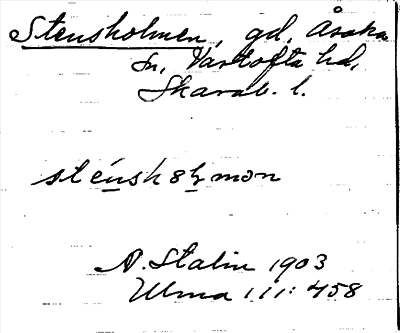 Stensholmen, gd, Åsaka
sn, Vartofta hd,
Skarab. l.
sténsholmən
A. Stalin 1903
Ulma 111: 458